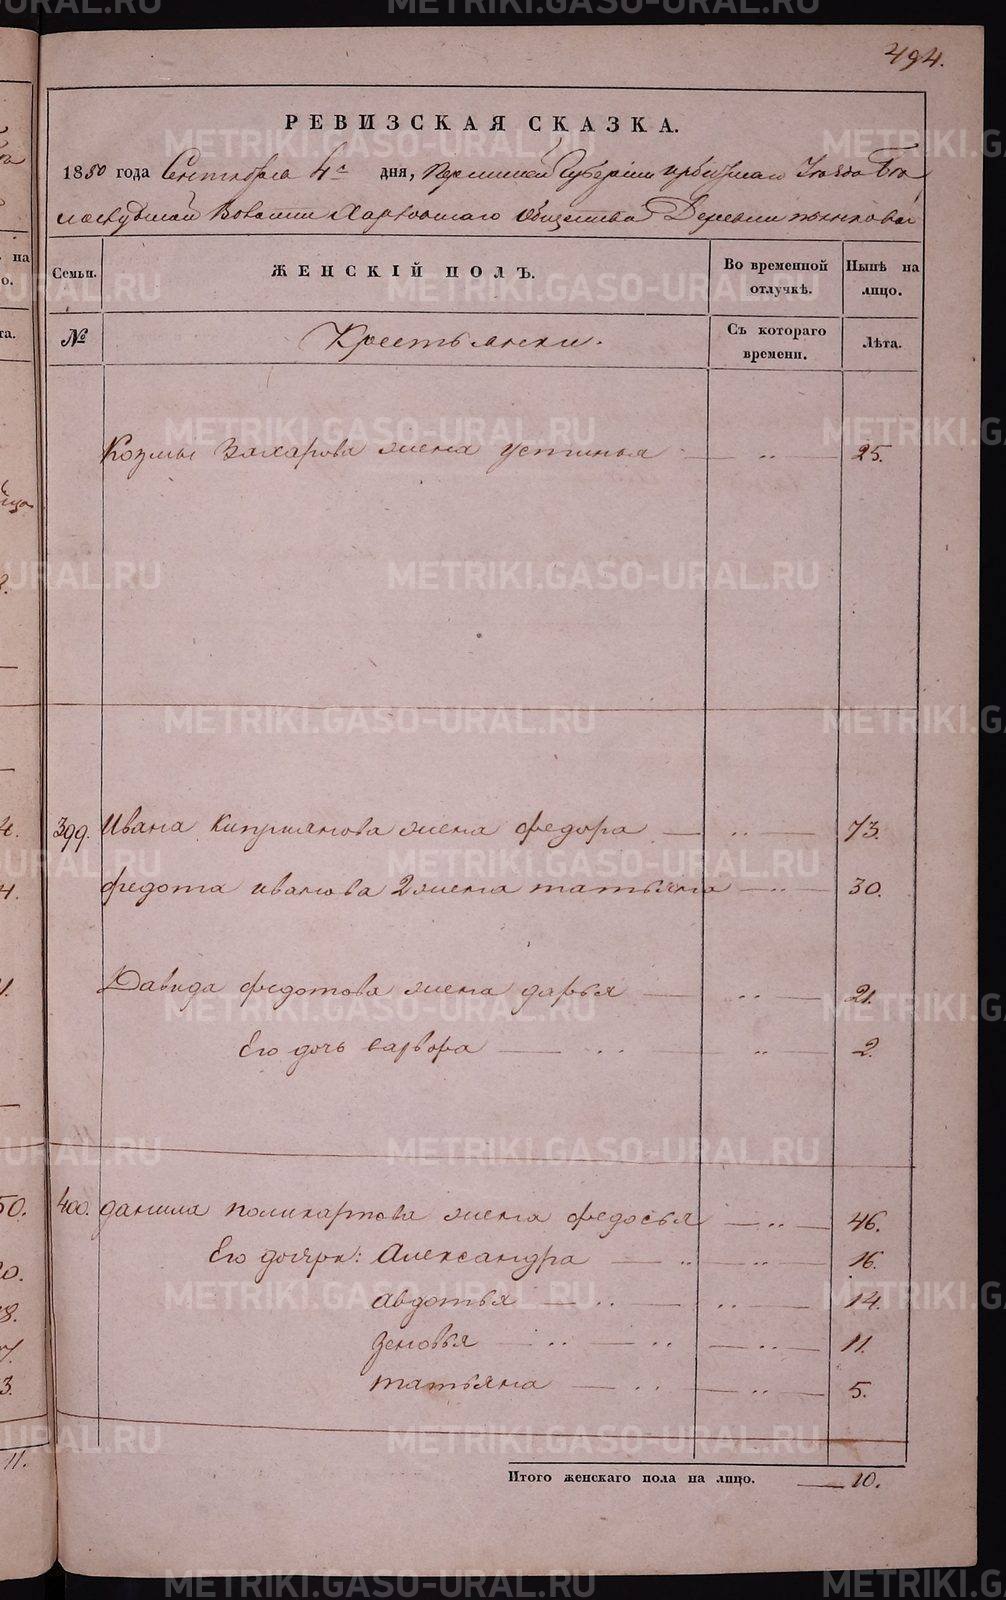 494.
РЕВИЗСКАЯ СКАЗКА.
1850 года Сентября 4г дня, Пермской Губернии Ирбитскаго Уезда Бѣ
лослудской Волости Харловскаго Общества Деревни
Семьи. ЖЕНСКІЙ ПОЛЪ. Во временной отлучкѣ. Нынѣ на лицо.
№ Крестьянски. Съ котораго времени. Лѣта.
Козмы Захарова жена устинья — „ — 25.
399. Ивана Киприянова жена федора — „ — 73.
федота иванова 2 жена татьяна — „ — 30.
Давида федотова жена дарья — „ — 21.
Его дочь варвора — „ — „ — 2.
400. данила поликарпова жена федосья — „ — 46.
Его дочери: Александра — „ — „ — 16.
авдотья — „ — „ — 14.
зеновья — „ — „ — 11.
татьяна — „ — „ — 5.
Итого женскаго пола на лицо. — 10.
METRIKI.GASO-URAL.RU